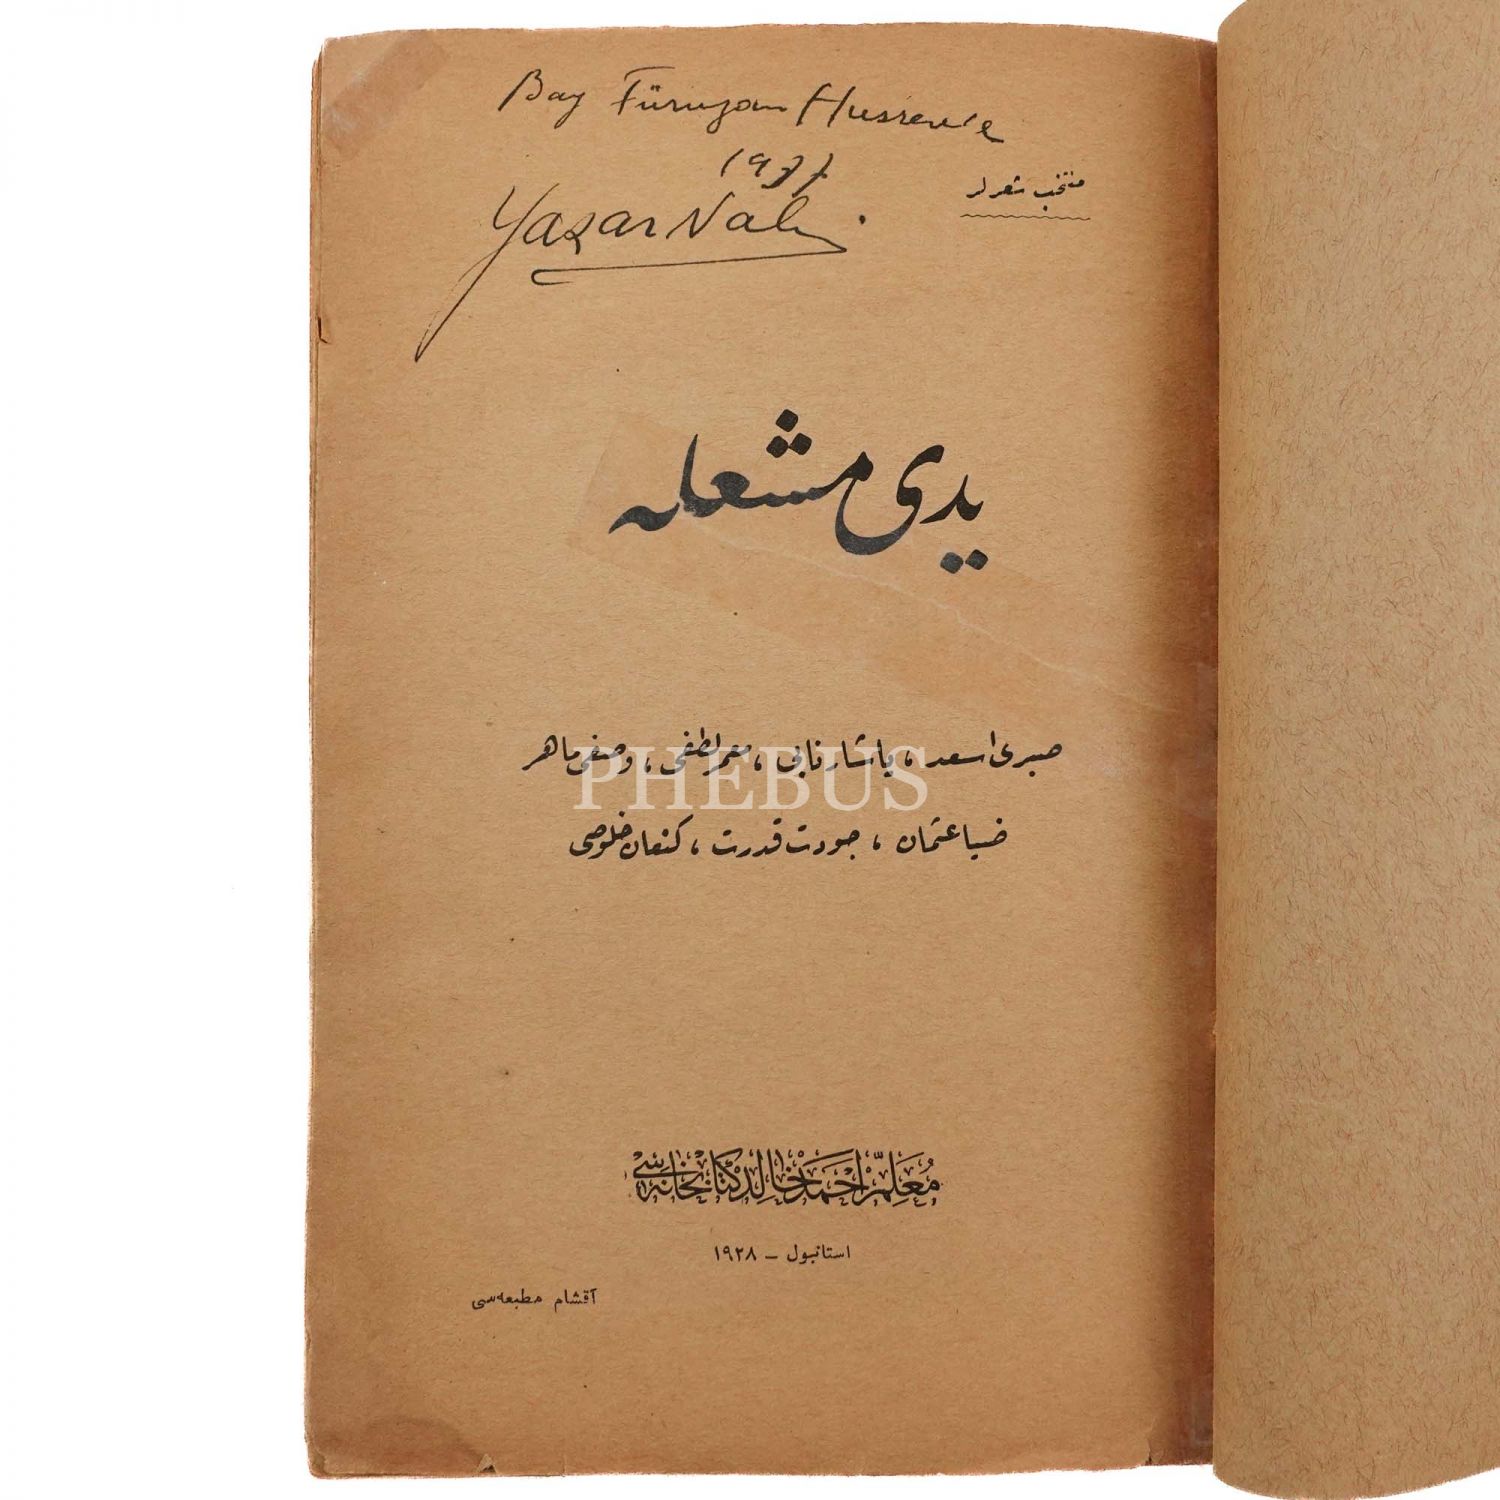 Bay Füruzan Husrev'e
1977
Yaşar Nabi
منتخب شعرلر
یدی مشعله
صبری اسعد، یاشار نابی، معمر لطفی، وصفی ماهر
PHEBUS
ضیا عثمان، جودت قدرت، کنعان خلوصی
مُعَلِّم اَحمَد خَالِد کتابخانه‌سی
استانبول – ۱۹۲۸
آقشام مطبعه‌سی